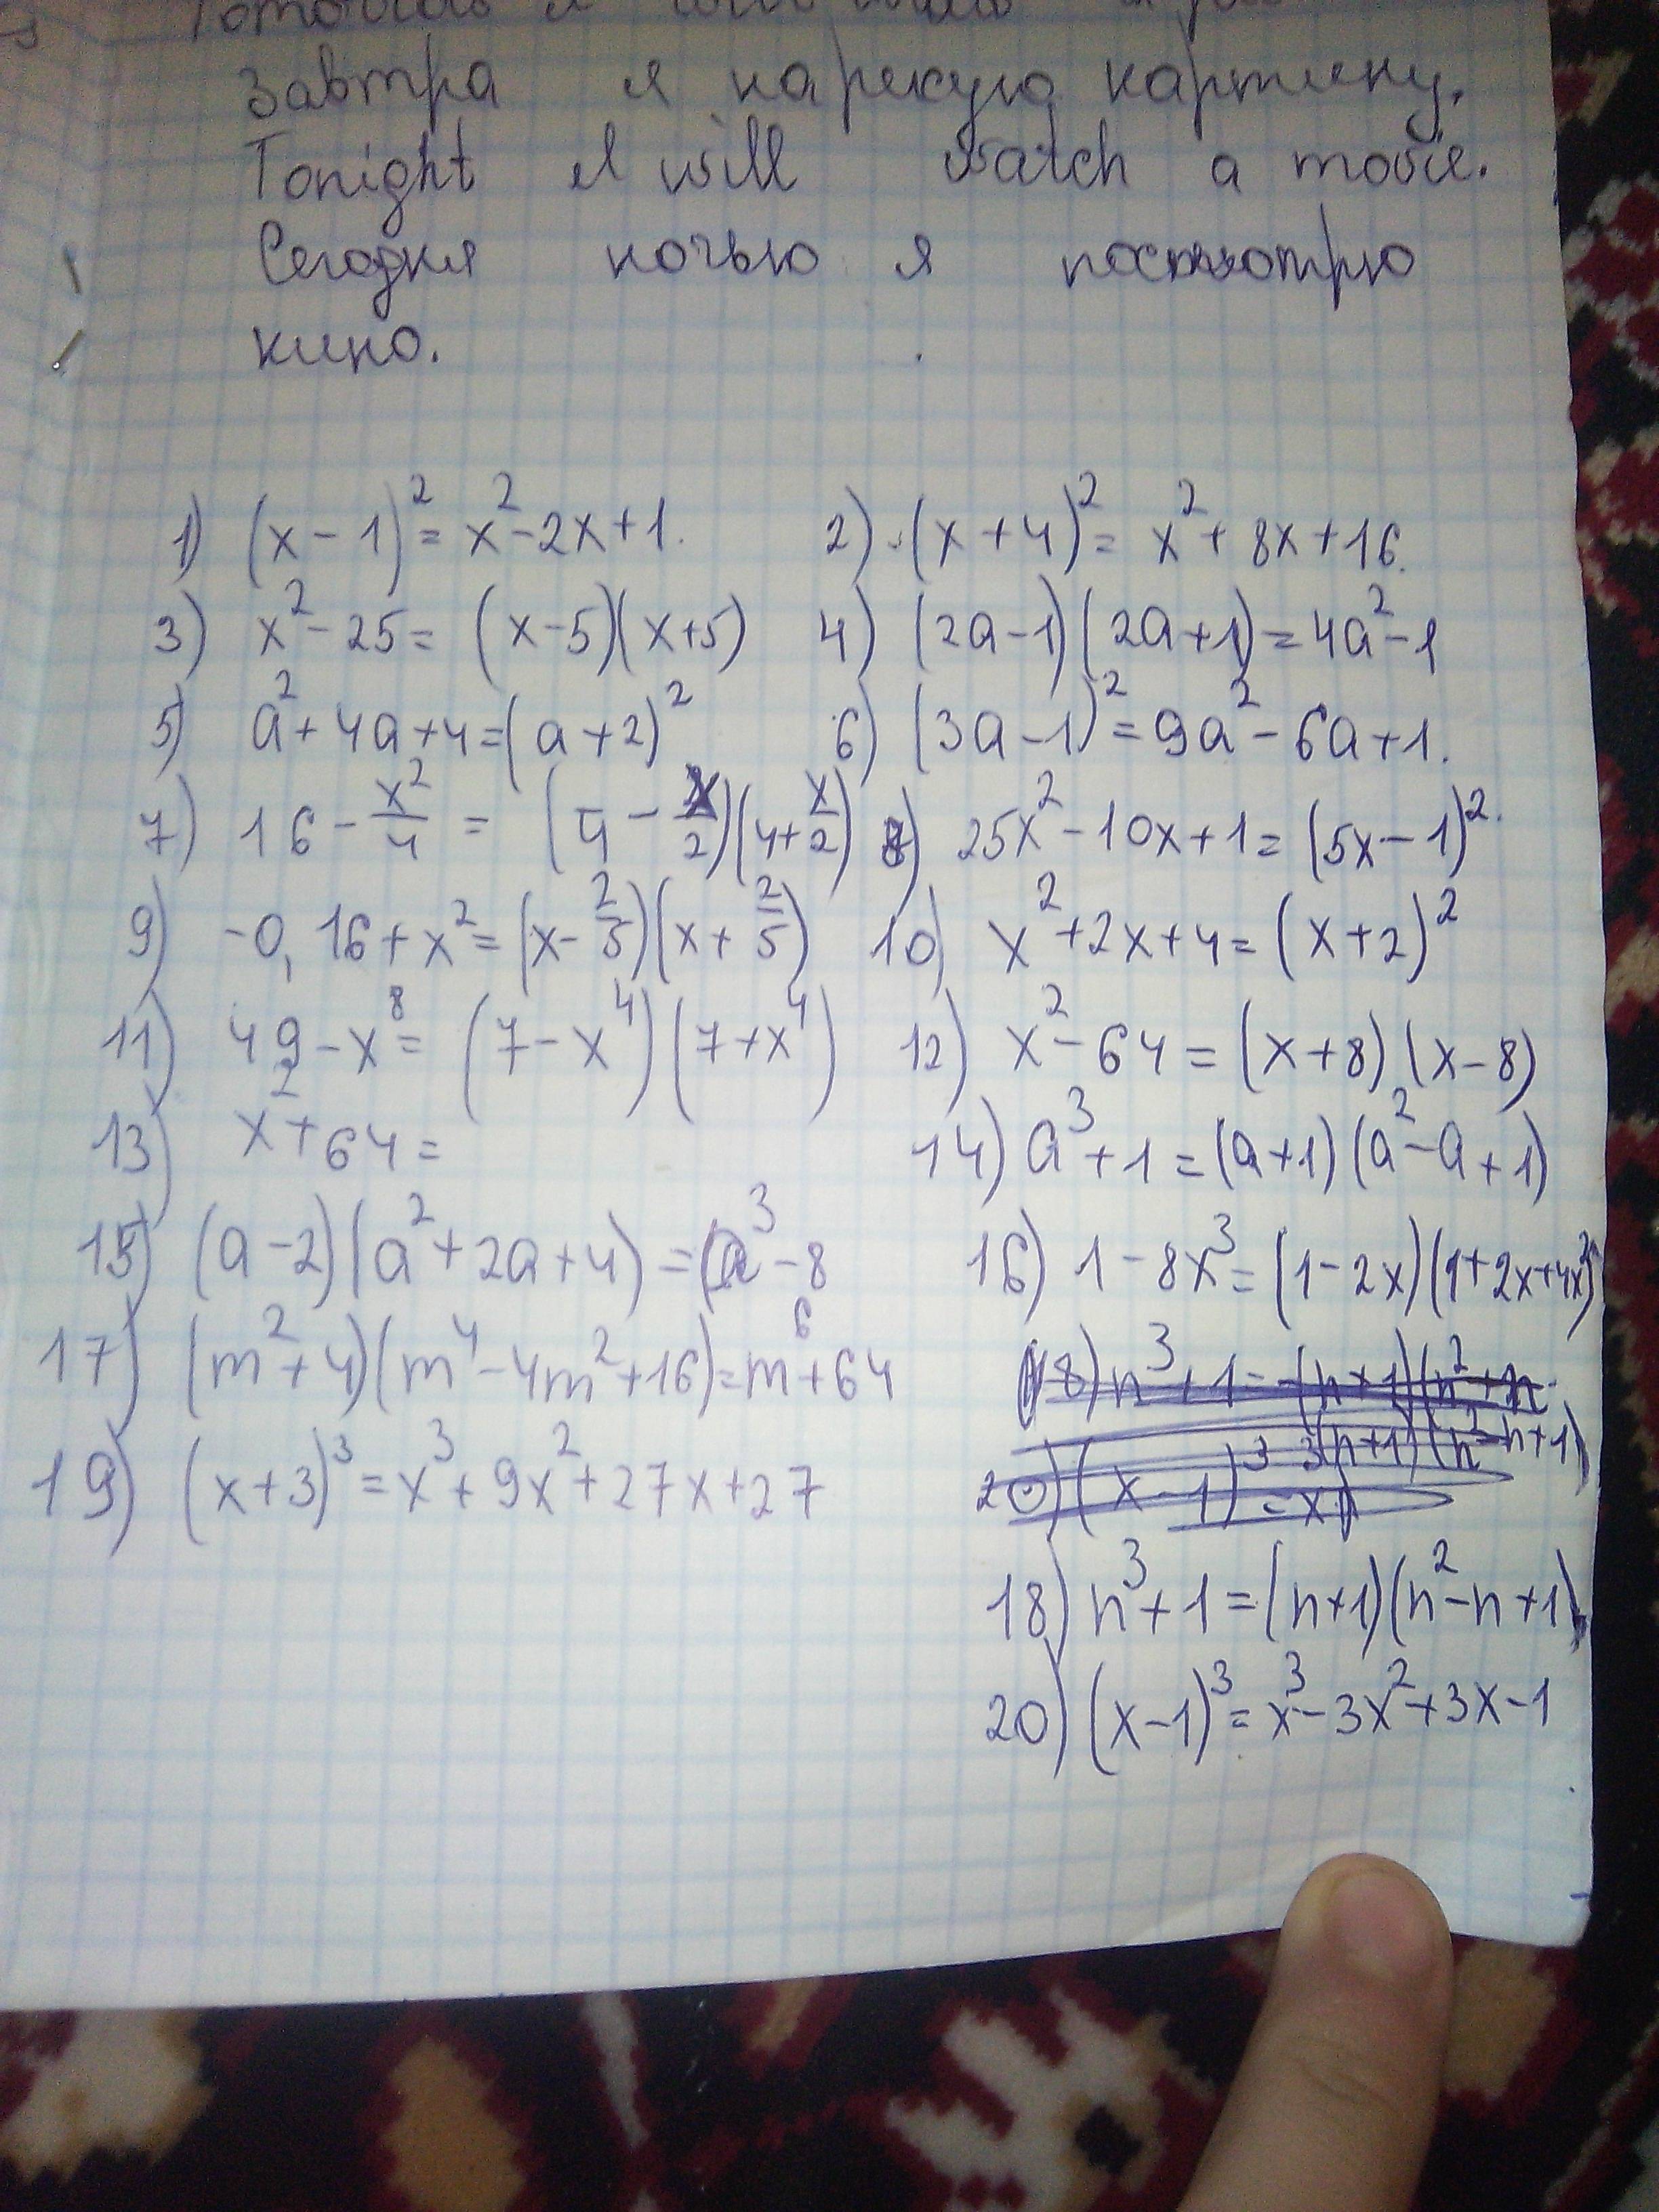 Завтра я нарисую картину.
Tonight I will watch a movie.
Сегодня ночью я посмотрю
кино.
1) (x-1)²= x²-2x+1. 2) (x+4)²= x²+8x+16.
3) x²-25= (x-5)(x+5) 4) (2a-1)(2a+1)=4a²-1
5) a²+4a+4=(a+2)² 6) (3a-1)²=9a²-6a+1.
7) 16-x²/4 = (4-x/2)(4+x/2) 8) 25x²-10x+1=(5x-1)².
9) -0,16+x²=(x-2/5)(x+2/5) 10) x²+2x+4=(x+2)²
11) 49-x⁸= (7-x⁴)(7+x⁴) 12) x²-64=(x+8)(x-8)
13) x²+64= 14) a³+1=(a+1)(a²-a+1)
15) (a-2)(a²+2a+4)=a³-8 16) 1-8x³=(1-2x)(1+2x+4x²)
17) (m²+4)(m⁴-4m²+16)=m⁶+64 18) n³+1=(n+1)(n²+n
(n+1)(n²-n+1)
19) (x+3)³=x³+9x²+27x+27 20) (x-1)³=x
18) n³+1=(n+1)(n²-n+1)
20) (x-1)³=x³-3x²+3x-1